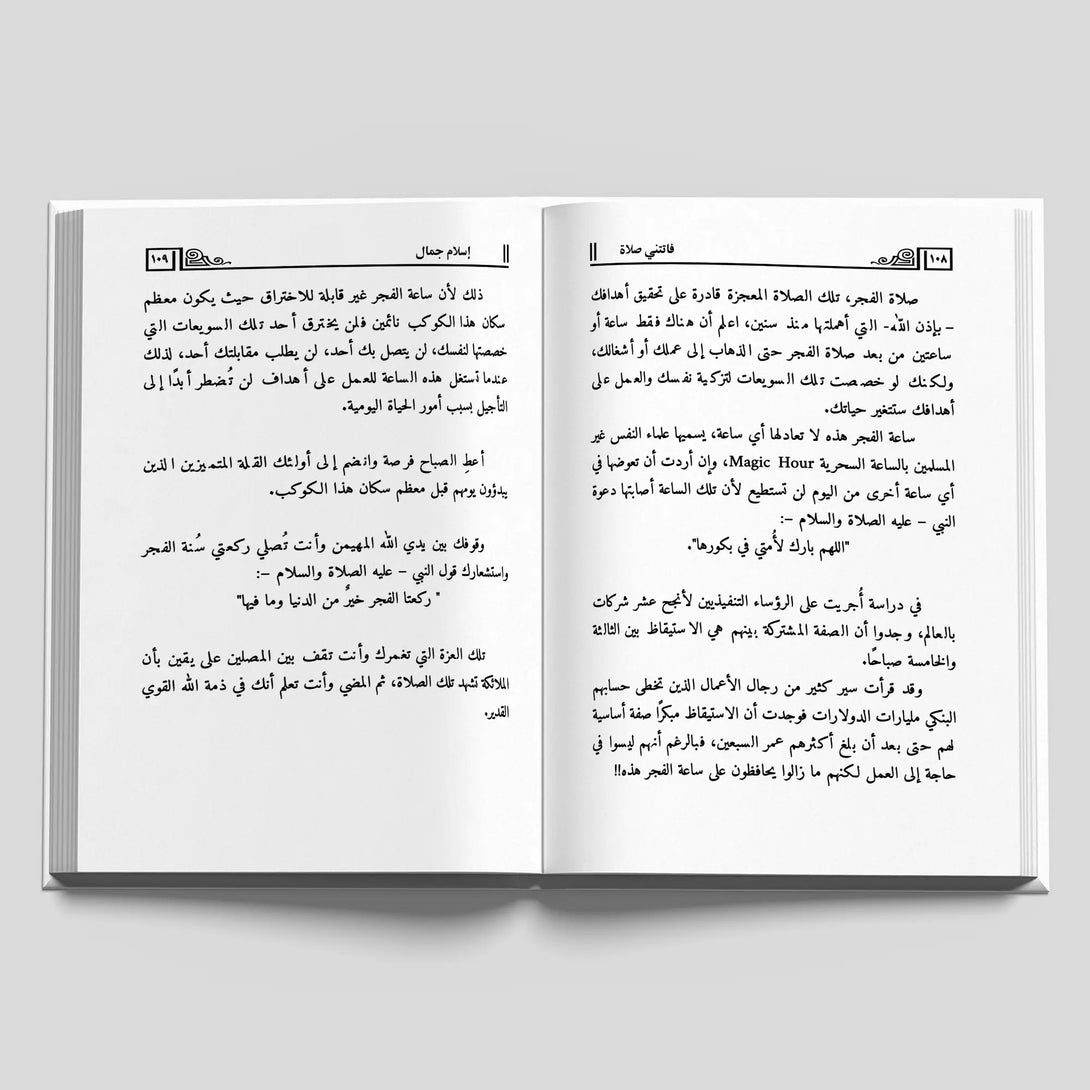 ١٠٨
فاتتني صلاة
صلاة الفجر، تلك الصلاة المعجزة قادرة على تحقيق أهدافك
– بإذن الله- التي أهملتها منذ سنين، اعلم أن هناك فقط ساعة أو
ساعتين من بعد صلاة الفجر حتى الذهاب إلى عملك أو أشغالك،
ولكنك لو خصصت تلك السويعات لتزكية نفسك والعمل على
أهدافك ستتغير حياتك.
ساعة الفجر هذه لا تعادلها أي ساعة، يسميها علماء النفس غير
المسلمين بالساعة السحرية Magic Hour، وإن أردت أن تعوضها في
أي ساعة أخرى من اليوم لن تستطيع لأن تلك الساعة أصابتها دعوة
النبي – عليه الصلاة والسلام –:
"اللهم بارك لأُمتي في بكورها".
في دراسة أُجريت على الرؤساء التنفيذيين لأنجح عشر شركات
بالعالم، وجدوا أن الصفة المشتركة بينهم هي الاستيقاظ بين الثالثة
والخامسة صباحًا.
وقد قرأت سير كثير من رجال الأعمال الذين تخطى حسابهم
البنكي مليارات الدولارات فوجدت أن الاستيقاظ مبكرًا صفة أساسية
لهم حتى بعد أن بلغ أكثرهم عمر السبعين، فبالرغم أنهم ليسوا في
حاجة إلى العمل لكنهم ما زالوا يحافظون على ساعة الفجر هذه!!
إسلام جمال
١٠٩
ذلك لأن ساعة الفجر غير قابلة للاختراق حيث يكون معظم
سكان هذا الكوكب نائمين فلمن يخترق أحد تلك السويعات التي
خصصتها لنفسك، لن يتصل بك أحد، لن يطلب مقابلتك أحد، لذلك
عندما تستغل هذه الساعة للعمل على أهداف لن تُضطر أبدًا إلى
التأجيل بسبب أمور الحياة اليومية.
أعطِ الصباح فرصة وانضم إلى أولئك القلة المتميزين الذين
يبدؤون يومهم قبل معظم سكان هذا الكوكب.
وقوفك بين يدي الله المهيمن وأنت تُصلي ركعتي سُنة الفجر
واستشعارك قول النبي – عليه الصلاة والسلام –:
" ركعتا الفجر خيرٌ من الدنيا وما فيها"
تلك العزة التي تغمرك وأنت تقف بين المصلين على يقين بأن
الملائكة تشهد تلك الصلاة، ثم المضي وأنت تعلم أنك في ذمة الله القوي
القدير.